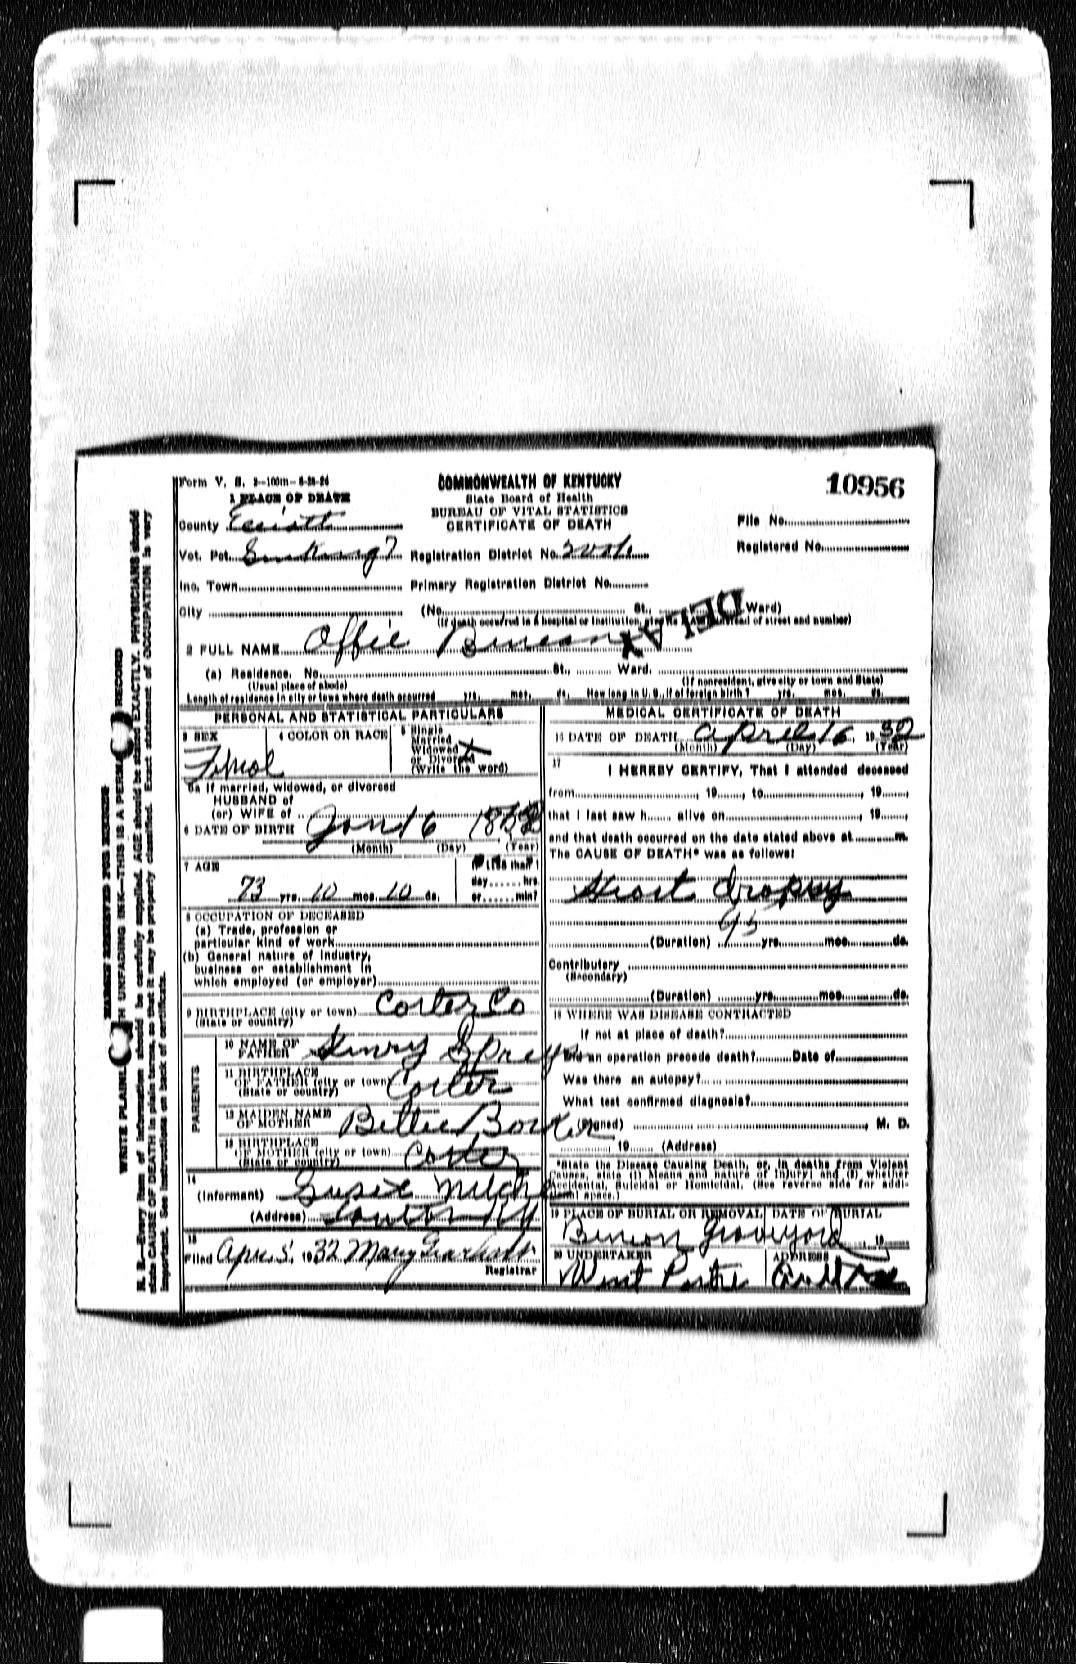 10956
Form V. S. 2-100m-8-28-24
COMMONWEALTH OF KENTUCKY
State Board of Health
BUREAU OF VITAL STATISTICS
CERTIFICATE OF DEATH
1 PLACE OF DEATH
County
File No.
Vot. Pct. Registration District No.
Registered No.
Inc. Town Primary Registration District No.
City (No. St., Ward)
(If death occurred in a hospital or institution, of street and number)
DELAY
2 FULL NAME Offie
(a) Residence. No. St., Ward.
(Usual place of abode) (If nonresident, give city or town and State)
Length of residence in city or town where death occurred yrs. mos. ds. How long in U. S., if of foreign birth? yrs. mos. ds.
PERSONAL AND STATISTICAL PARTICULARS
3 SEX 4 COLOR OR RACE 5 Single
Married
Widowed X
or Divorced
(Write the word)
Fimol
5a If married, widowed, or divorced
HUSBAND of
(or) WIFE of
6 DATE OF BIRTH Jan 16
(Month) (Day) (Year)
7 AGE If LESS than 1
73 yrs. 10 mos. 10 ds. day hrs.
or min?
8 OCCUPATION OF DECEASED
(a) Trade, profession or
particular kind of work
(b) General nature of industry,
business or establishment in
which employed (or employer)
9 BIRTHPLACE (city or town) Carter Co
(State or country)
PARENTS
10 NAME OF
FATHER Henry
11 BIRTHPLACE
OF FATHER (city or town) Carter
(State or country)
12 MAIDEN NAME
OF MOTHER
13 BIRTHPLACE
OF MOTHER (city or town) Carter
(State or country)
14
(Informant) Susie
(Address) Ky
15
Filed Apr. 5, 1932 Mary
Registrar
MEDICAL CERTIFICATE OF DEATH
16 DATE OF DEATH April 16 1932
(Month) (Day) (Year)
17
I HEREBY CERTIFY, That I attended deceased
from 19 , to 19 ,
that I last saw h alive on , 19 ,
and that death occurred on the date stated above at m.
The CAUSE OF DEATH* was as follows:
Heart dropsy
95
(Duration) yrs. mos. ds.
Contributory
(Secondary)
(Duration) yrs. mos. ds.
18 WHERE WAS DISEASE CONTRACTED
If not at place of death?
Did an operation precede death? Date of
Was there an autopsy?
What test confirmed diagnosis?
(Signed) , M. D.
19 (Address)
*State the Disease Causing Death, or, in deaths from Violent
Causes, state (1) Means and nature of Injury; and (2) whether
Accidental, Suicidal or Homicidal. (See reverse side for addi-
tional space.)
19 PLACE OF BURIAL OR REMOVAL DATE OF BURIAL
Graveyard 19
20 UNDERTAKER ADDRESS
MARGIN RESERVED FOR BINDER
WRITE PLAINLY WITH UNFADING INK—THIS IS A PERMANENT RECORD
N. B.—Every item of information should be carefully supplied. AGE should be stated EXACTLY. PHYSICIANS should
state CAUSE OF DEATH in plain terms, so that it may be properly classified. Exact statement of OCCUPATION is very
important. See instructions on back of certificate.